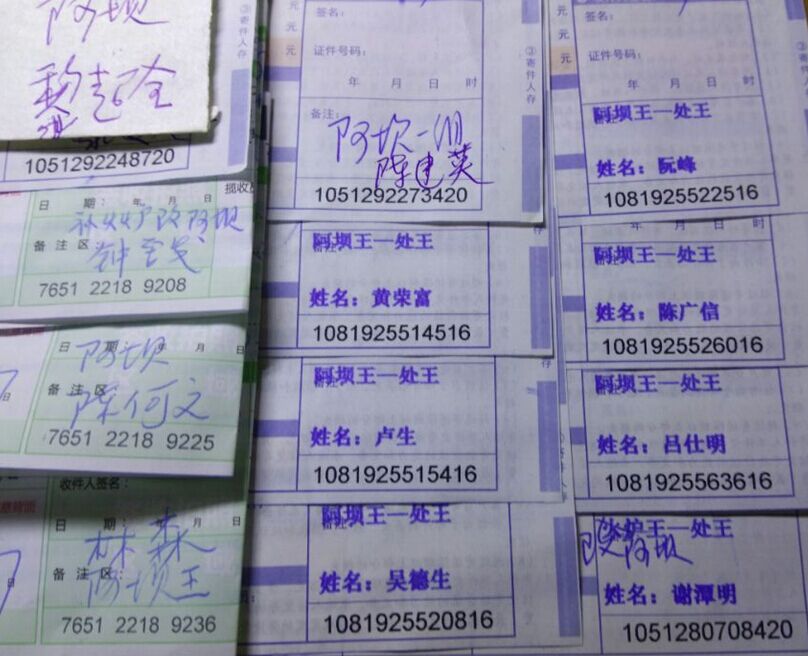 阿坝
③寄件人存
1051292248720
揽收
日 期: 年 月 日
补火炉改阿坝
备注区
7651 2218 9208
日 期: 年 月 日
阿坝
备注区
陈何文
7651 2218 9225
收件人签名:
日 期: 年 月 日
林森
备注区:
阿坝王
7651 2218 9236
元
元
签名:
证件号码:
年 月 日 时
③寄件人存
备注:
阿坝一组
陈建英
1051292273420
阿坝王一处王
姓名:黄荣富
1081925514516
阿坝王一处王
姓名:卢生
1081925515416
阿坝王一处王
姓名:吴德生
1081925520816
元
元
元
签名:
证件号码:
年 月 日 时
③寄件人存
阿坝王一处王
姓名:阮峰
1081925522516
年 月 日 时
阿坝王一处王
姓名:陈广信
1081925526016
阿坝王一处王
姓名:吕仕明
1081925563616
火炉王一处王
改阿坝
姓名:谢潭明
1051280708420